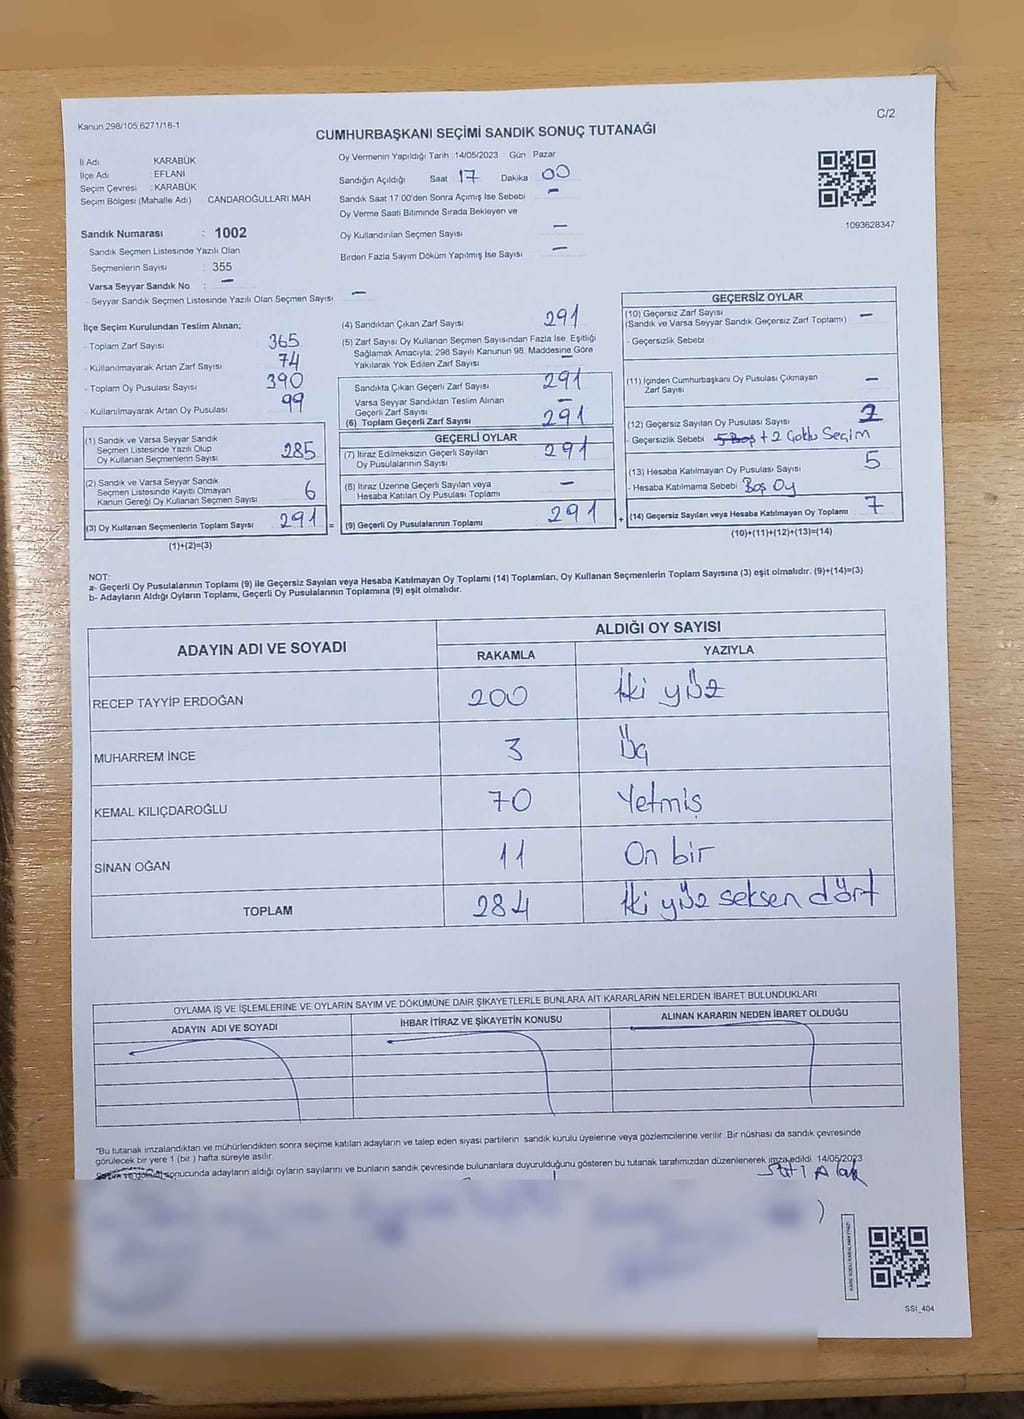 Kanun:298/105,6271/18-1
C/2
CUMHURBAŞKANI SEÇİMİ SANDIK SONUÇ TUTANAĞI
İl Adı KARABÜK
İlçe Adı : EFLANİ
Seçim Çevresi : KARABÜK
Seçim Bölgesi (Mahalle Adı) CANDAROĞULLARI MAH
Oy Vermenin Yapıldığı Tarih 14/05/2023 Gün Pazar
Sandığın Açıldığı Saat 17 Dakika 00
Sandık Saat 17:00'den Sonra Açımış İse Sebebi –
Oy Verme Saati Bitiminde Sırada Bekleyen ve
Oy Kullandırılan Seçmen Sayısı –
Birden Fazla Sayım Döküm Yapılmış İse Sayısı –
1093628347
Sandık Numarası : 1002
- Sandık Seçmen Listesinde Yazılı Olan
Seçmenlerin Sayısı : 355
Varsa Seyyar Sandık No : –
- Seyyar Sandık Seçmen Listesinde Yazılı Olan Seçmen Sayısı –
İlçe Seçim Kurulundan Teslim Alınan;
- Toplam Zarf Sayısı 365
- Kullanılmayarak Artan Zarf Sayısı 74
- Toplam Oy Pusulası Sayısı 390
- Kullanılmayarak Artan Oy Pusulası 99
(1) Sandık ve Varsa Seyyar Sandık
Seçmen Listesinde Yazılı Olup
Oy Kullanan Seçmenlerin Sayısı 285
(2) Sandık ve Varsa Seyyar Sandık
Seçmen Listesinde Kayıtlı Olmayan
Kanun Gereği Oy Kullanan Seçmen Sayısı 6
(3) Oy Kullanan Seçmenlerin Toplam Sayısı 291 =
(1)+(2)=(3)
(4) Sandıktan Çıkan Zarf Sayısı 291
(5) Zarf Sayısı Oy Kullanan Seçmen Sayısından Fazla İse, Eşitliği
Sağlamak Amacıyla; 298 Sayılı Kanunun 98. Maddesine Göre
Yakılarak Yok Edilen Zarf Sayısı –
Sandıkta Çıkan Geçerli Zarf Sayısı 291
Varsa Seyyar Sandıktan Teslim Alınan
Geçerli Zarf Sayısı –
(6) Toplam Geçerli Zarf Sayısı 291
GEÇERLİ OYLAR
(7) İtiraz Edilmeksizin Geçerli Sayılan
Oy Pusulalarının Sayısı 291
(8) İtiraz Üzerine Geçerli Sayılan veya
Hesaba Katılan Oy Pusulası Toplamı –
(9) Geçerli Oy Pusulalarının Toplamı 291 +
GEÇERSİZ OYLAR
(10) Geçersiz Zarf Sayısı –
(Sandık ve Varsa Seyyar Sandık Geçersiz Zarf Toplamı)
- Geçersizlik Sebebi
(11) İçinden Cumhurbaşkanı Oy Pusulası Çıkmayan –
Zarf Sayısı
(12) Geçersiz Sayılan Oy Pusulası Sayısı 2
- Geçersizlik Sebebi 5 Boş + 2 Çoklu Seçim
(13) Hesaba Katılmayan Oy Pusulası Sayısı 5
- Hesaba Katılmama Sebebi Boş Oy
(14) Geçersiz Sayılan veya Hesaba Katılmayan Oy Toplamı 7
(10)+(11)+(12)+(13)=(14)
NOT:
a- Geçerli Oy Pusulalarının Toplamı (9) ile Geçersiz Sayılan veya Hesaba Katılmayan Oy Toplamı (14) Toplamları, Oy Kullanan Seçmenlerin Toplam Sayısına (3) eşit olmalıdır. (9)+(14)=(3)
b- Adayların Aldığı Oyların Toplamı, Geçerli Oy Pusulalarının Toplamına (9) eşit olmalıdır.
ADAYIN ADI VE SOYADI
ALDIĞI OY SAYISI
RAKAMLA YAZIYLA
RECEP TAYYİP ERDOĞAN 200 İki yüz
MUHARREM İNCE 3 Üç
KEMAL KILIÇDAROĞLU 70 Yetmiş
SİNAN OĞAN 11 On bir
TOPLAM 284 İki yüz seksen dört
OYLAMA İŞ VE İŞLEMLERİNE VE OYLARIN SAYIM VE DÖKÜMÜNE DAİR ŞİKAYETLERLE BUNLARA AİT KARARLARIN NELERDEN İBARET BULUNDUKLARI
ADAYIN ADI VE SOYADI İHBAR İTİRAZ VE ŞİKAYETİN KONUSU ALINAN KARARIN NEDEN İBARET OLDUĞU
"Bu tutanak imzalandıktan ve mühürlendikten sonra seçime katılan adayların ve talep eden siyasi partilerin sandık kurulu üyelerine veya gözlemcilerine verilir. Bir nüshası da sandık çevresinde
görülecek bir yere 1 (bir ) hafta süreyle asılır.
sonucunda adayların aldığı oyların sayılarını ve bunların sandık çevresinde bulunanlara duyurulduğunu gösteren bu tutanak tarafımızdan düzenlenerek imza edildi 14/05/2023
SSİ_404